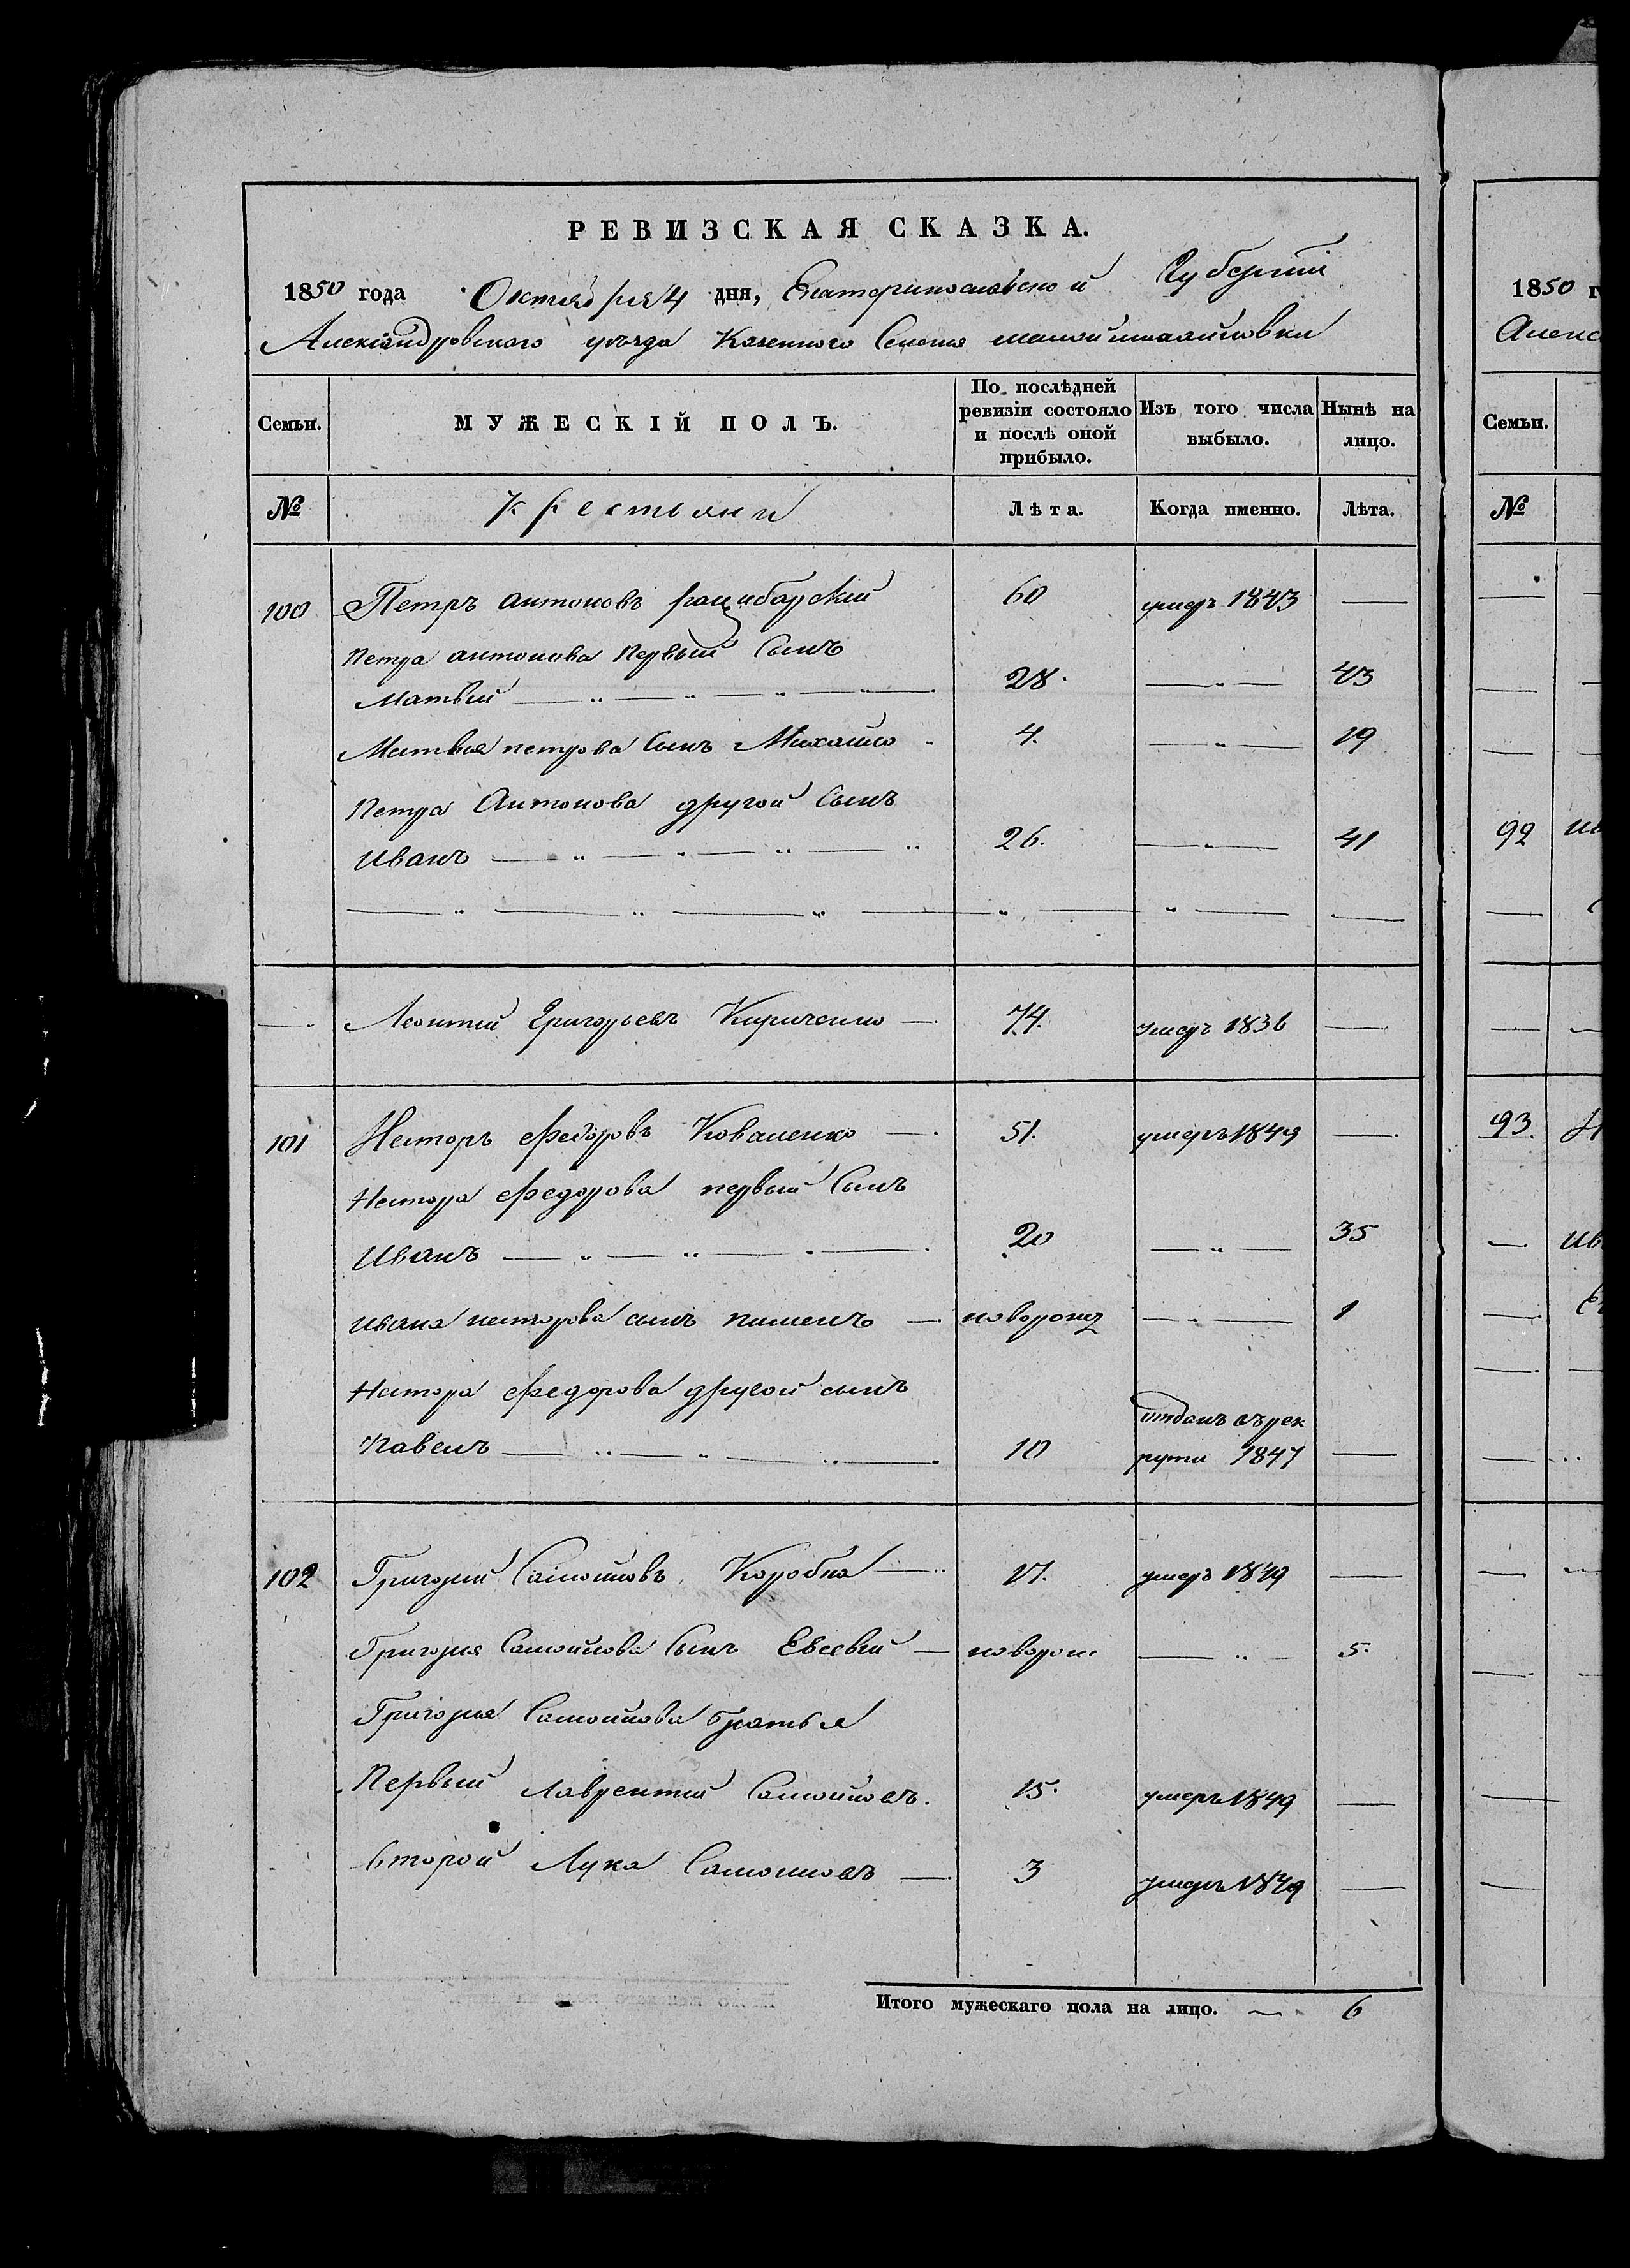 РЕВИЗСКАЯ СКАЗКА.
1850 года Октября 4 дня, Екатеринославской Губернии
Александровского уѣзда Казенного Селения малой михайловки
Семьи.
МУЖЕСКІЙ ПОЛЪ.
По послѣдней
ревизіи состояло
и послѣ оной
прибыло.
Изъ того числа
выбыло.
Нынѣ на
лицо.
№ крестьяни Лѣта. Когда именно. Лѣта.
100 Петръ антоновъ 60 умеръ 1843 —
Петра антонова Первый Сынъ
Матвей 28. — 43
Матвея петрова Сынъ Михайло 4. — 19
Петра Антонова другой Сынъ
Иванъ 26. — 41
— Леонтий Григорьевъ Кириченко — 74. умеръ 1836 —
101 Несторъ Федоровъ Коваленко — 51. умеръ 1849 —
Нестора Федорова первый Сынъ
Иванъ 20 — 35
Ивана несторова сынъ пименъ — 1
Нестора Федорова другой сынъ
Павелъ 10 отданъ въ рек
рути 1847 —
102 Григорий Самойловъ Коробка — 17. умеръ 1849 —
Григория Самойлова Сынъ Евсевий — наворож — 5.
Григория Самойлова братья
Первый Лаврентий Самойловъ. 15. умеръ 1849 —
Второй Лука Самойловъ — 3 умеръ 1849 —
Итого мужескаго пола на лицо. — 6
1850 г
Алекс
Семьи.
№
92 Ив
93 Н
Ив